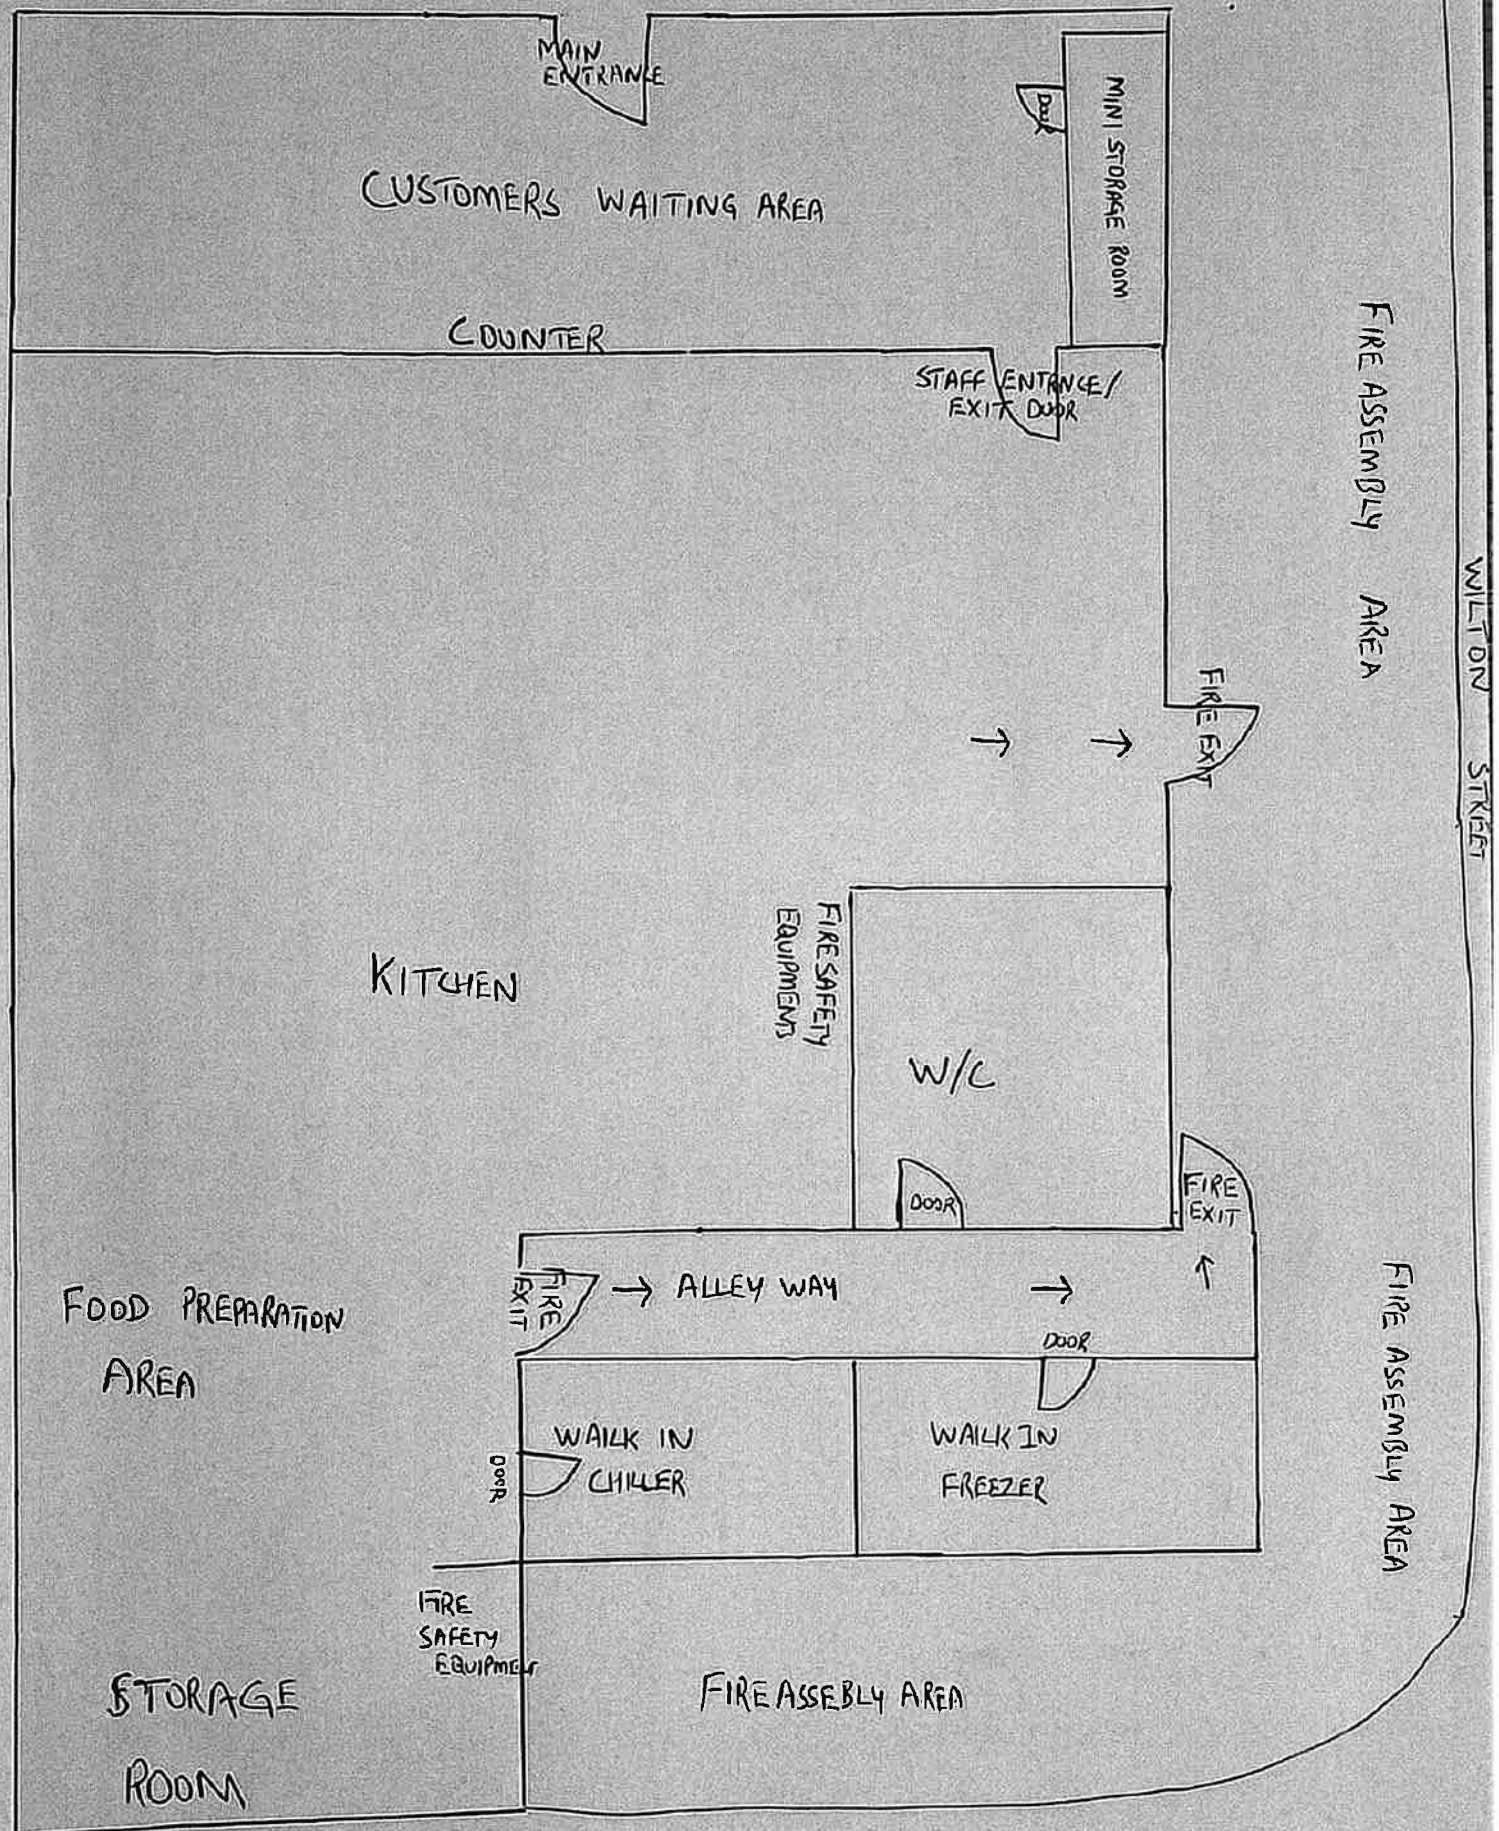 MAIN
ENTRANCE
DOOR
MINI STORAGE ROOM
CUSTOMERS WAITING AREA
COUNTER
STAFF ENTRNCE/
EXIT DOOR
FIRE ASSEMBLY AREA
WILTON STREET
→ →
FIRE EXIT
FIRE SAFETY
EQUIPMENTS
KITCHEN
W/C
DOOR
FIRE
EXIT
FIRE
EXIT
→ ALLEY WAY →
↑
FOOD PREPARATION
AREA
DOOR
WAILK IN
CHILLER
DOOR
WAILK IN
FREEZER
FIRE ASSEMBLY AREA
FIRE
SAFETY
EQUIPMENT
FIRE ASSEBLY AREA
STORAGE
ROOM